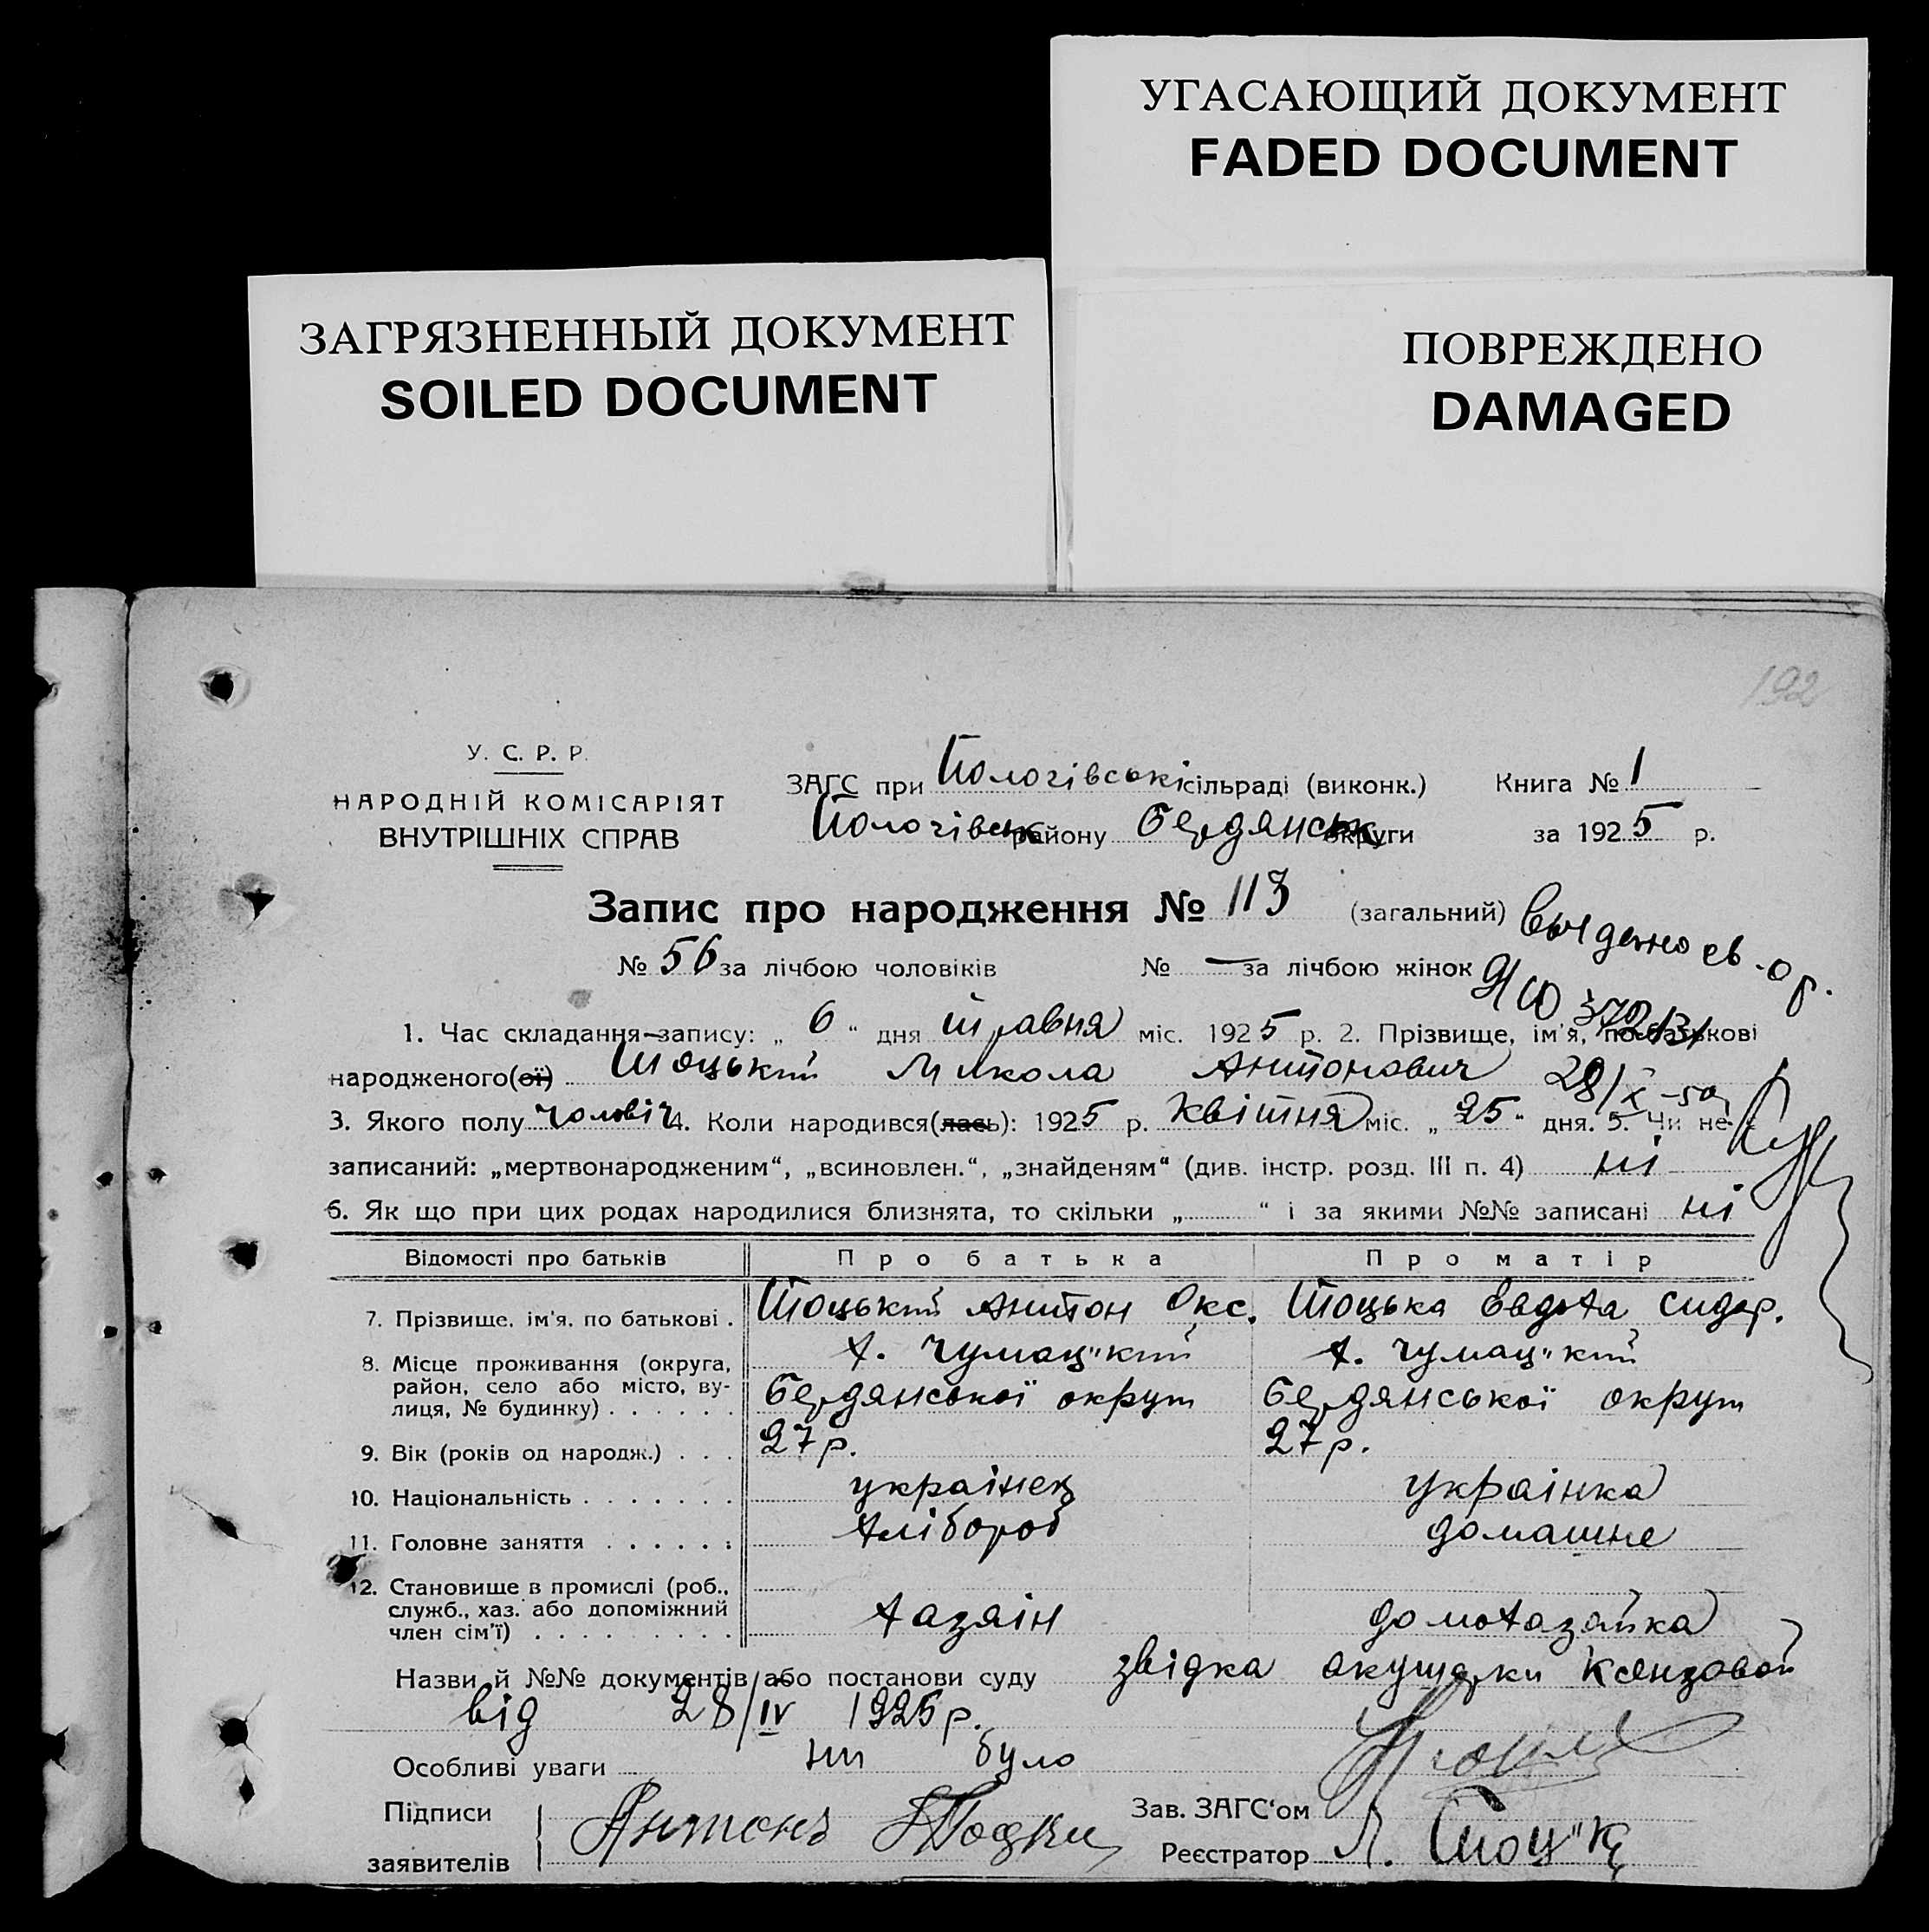 УГАСАЮЩИЙ ДОКУМЕНТ
FADED DOCUMENT
ЗАГРЯЗНЕННЫЙ ДОКУМЕНТ
SOILED DOCUMENT
ПОВРЕЖДЕНО
DAMAGED
192
У. С. Р. Р.
НАРОДНІЙ КОМІСАРІЯТ
ВНУТРІШНІХ СПРАВ
ЗАГС при Пологівські сільраді (виконк.) Книга № 1
Пологівськ району Бердянськ округи за 1925 р.
Запис про народження № 113 (загальний)
№ 56 за лічбою чоловіків № — за лічбою жінок
Выдано св-о р.
1. Час складання запису: „ 6 “ дня травня міс. 1925 р. 2. Прізвище, ім'я, по-батькові
народженого(ої) Тоцький Микола Антонович
28/X-50
3. Якого полу чоловіч 4. Коли народився(лась): 1925 р. Квітня міс. „ 25 “ дня. 5. Чи не
записаний: „мертвонародженим“, „всиновлен.“, „знайденям“ (див. інстр. розд. III п. 4) ні
6. Як що при цих родах народилися близнята, то скільки „ “ і за якими №№ записані ні
Відомості про батьків Про батька Про матір
7. Прізвище, ім'я, по батькові . Тоцький Антон Окс. Тоцька Евдоха Сидор.
8. Місце проживання (округа, х. Чумац"кий х. Чумац"кий
район, село або місто, ву- Бердянської округи Бердянської округи
лиця, № будинку) . . . . . .
9. Вік (років од народж.) . . . 27 р. 27 р.
10. Національність . . . . . . . українец українка
11. Головне заняття . . . . . . хлібороб домашне
12. Становище в промислі (роб.,
служб., хаз. або допоміжний хазяін домохазайка
член сім'ї) . . . . . . . . .
Назви й №№ документів або постанови суду звідка акушерки Ксензовой
від 28/IV 1925 р.
Особливі уваги ни було
Підписи
заявителів Антонъ Тоцкий
Зав. ЗАГС'ом
Реєстратор Л. Тоц"к